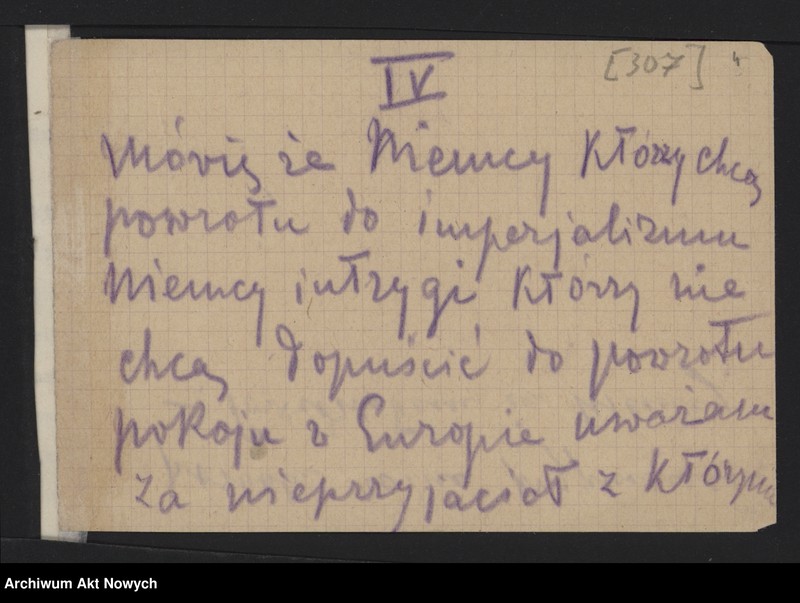 IV [307]
Mówię że Niemcy którzy chcą
powrotu do imperjalizmu
Niemcy intrygi którzy nie
chcą dopuścić do powrotu
pokoju w Europie uważam
za nieprzyjaciół z którymi
Archiwum Akt Nowych